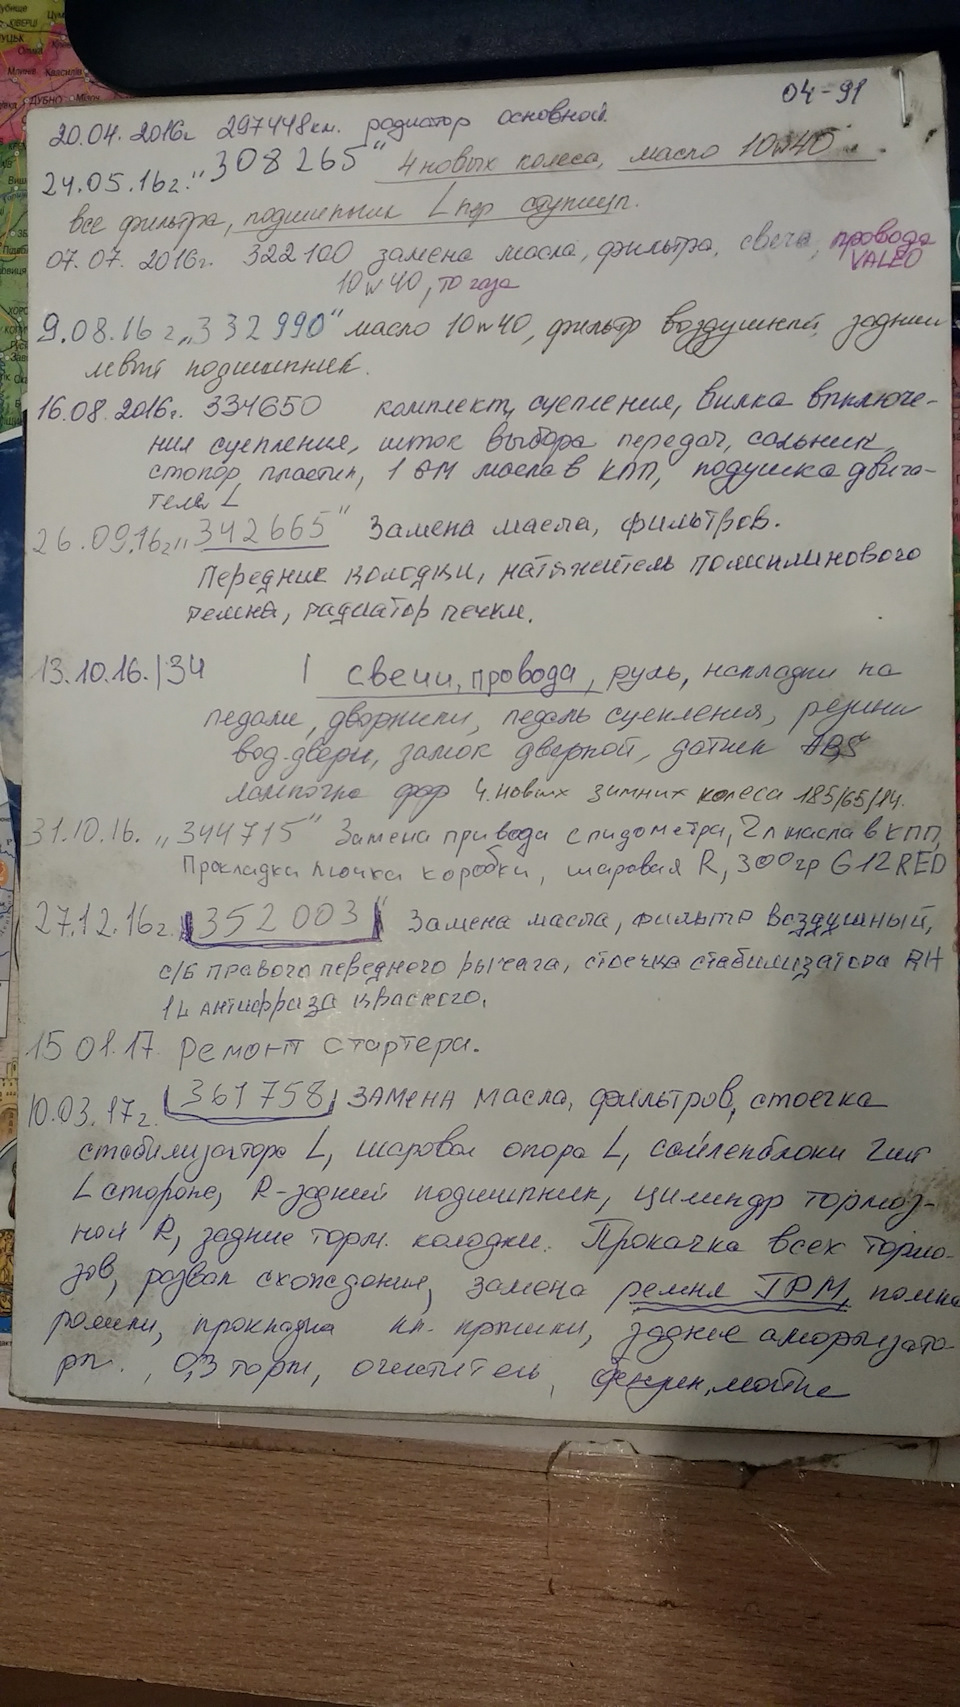 04-91
20.04.2016г 297448км. радиатор основной.
24.05.16г. "308265" 4 новых колеса, масло 10w40
все фильтра, подшипник L пер ступиц.
07.07.2016г. 322100 замена масла, фильтра, свеча, провода
VALEO
10w40, то газа
9.08.16 г „332990" масло 10w40, фильтр воздушный, задний
левый подшипник.
16.08.2016г. 334650 комплект, сцепления, вилка включе-
ния сцепления, шток выбора передач, сальник,
стопор, пластин, 1 л масла в КПП, подушка двига-
теля L
26.09.16г „342665" Замена масла, фильтров.
Передние колодки, натяжитель поликлинового
ремня, радиатор печки.
13.10.16.|34 | свечи, провода, руль, накладки на
педали, дворники, педаль сцепления, резина
вод.двери, замок дверной, датчик ABS
лампочка фар 4.новых зимних колеса 185/65/14.
31.10.16. „344715" Замена привода спидометра, 2л масла в КПП,
Прокладка лючка коробки, шаровая R, 300гр G12RED
27.12.16г. 352003" Замена масла, фильтр воздушный,
с/б правого переднего рычага, стоечка стабилизатора RH
1L антифриза красного,
15 01.17 ремонт стартера.
10.03.17г. 361758 замена масла, фильтров, стоечка
стабилизатора L, шаровая опора L, сайленблоки 2шт
L стороне, R-здний подшипник, цилиндр тормоз-
ной R, задние торм. колодки. Прокачка всех тормо-
зов, развал схождения, замена ремня ГРМ, помпа
ролики, прокладка кл. крышки, здние амортизато-
ры. , 0,3 торм, очиститель,